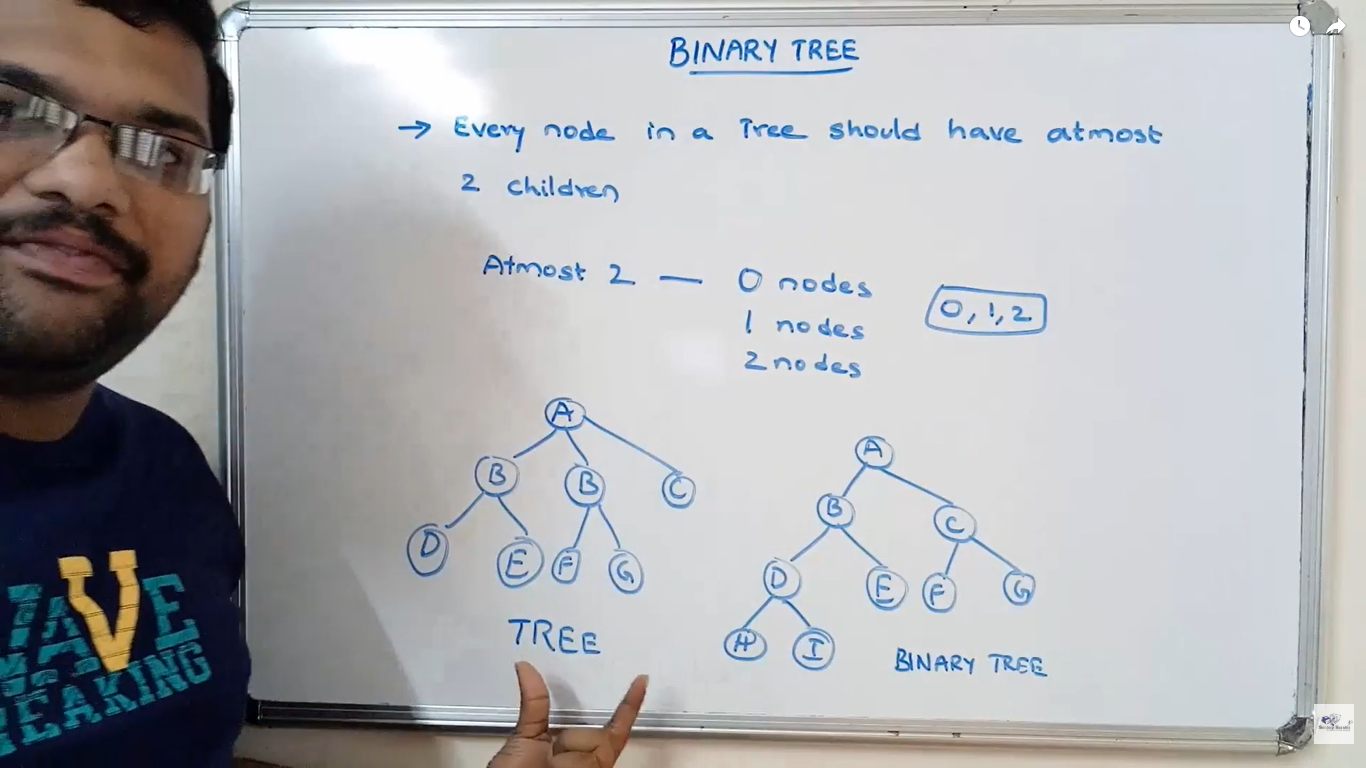 BINARY TREE
→ Every node in a Tree should have atmost
2 children
Atmost 2 — 0 nodes
1 nodes
2 nodes
0, 1, 2
A
B B C
D E F G
TREE
A
B C
D E F G
H I
BINARY TREE